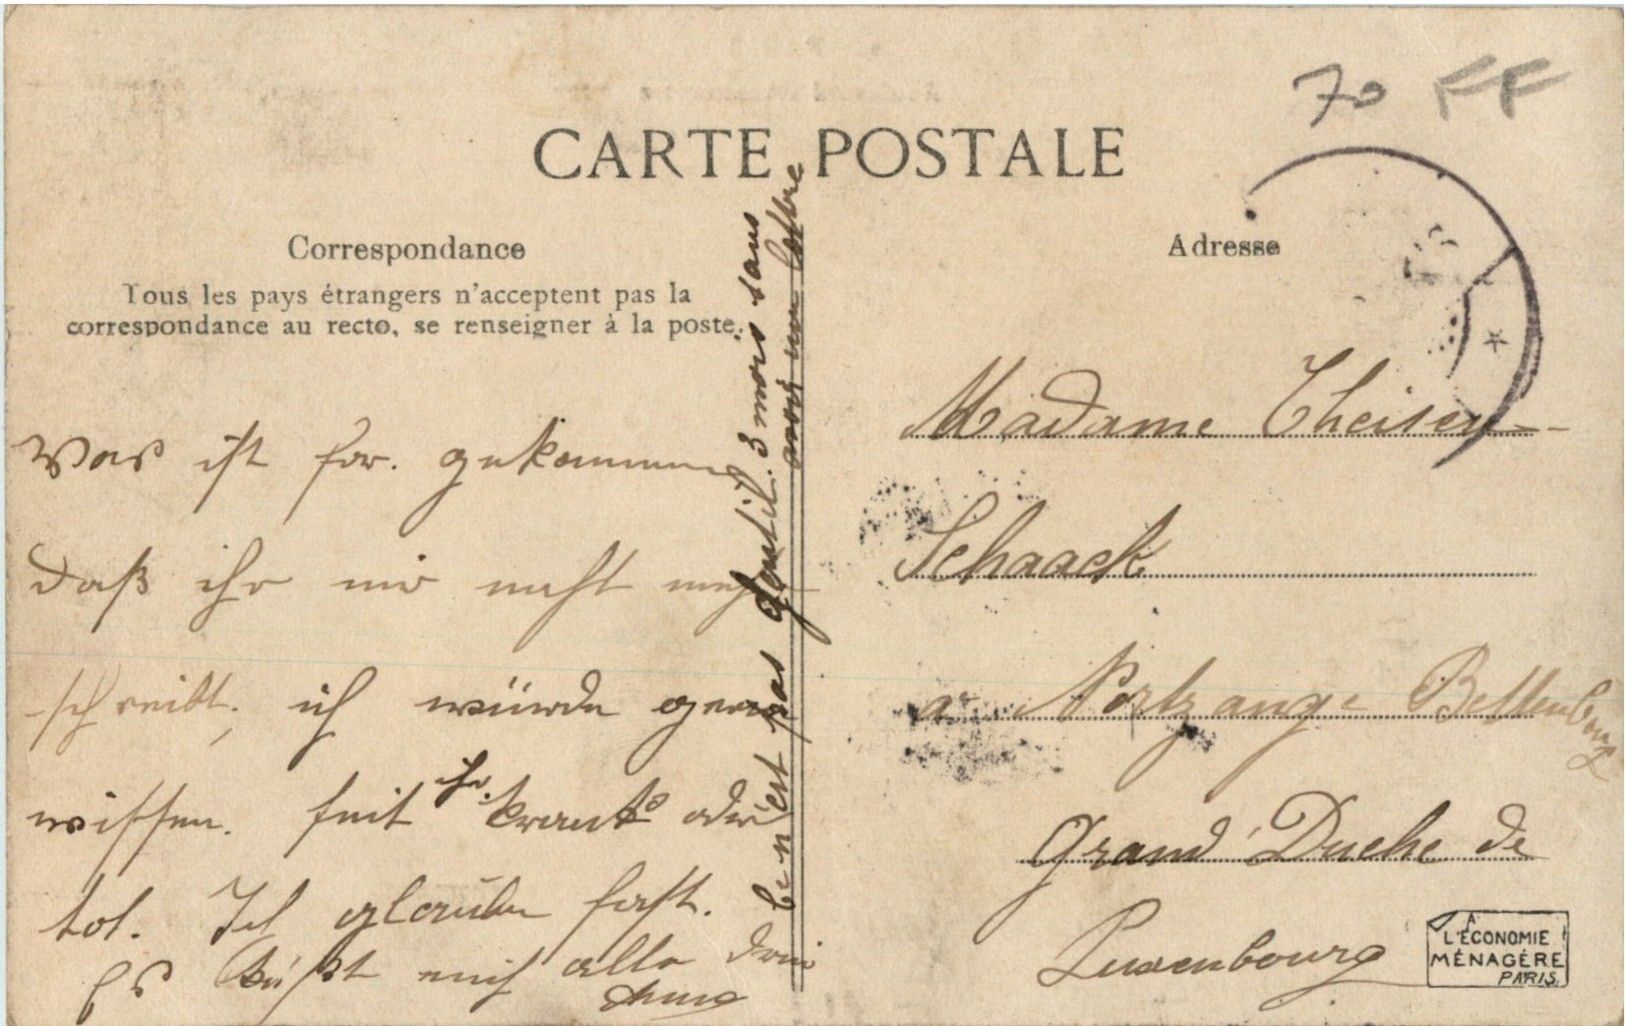 70 FF
CARTE POSTALE
Correspondance
Tous les pays étrangers n'acceptent pas la
correspondance au recto, se renseigner à la poste.
Was ist for. gekommen
daß ihr mir nicht mehr
schreibt, ich würde gern
wissen. seit ihr. krank oder
tot. Ich glaube fast.
Es küßt euch alle drei
Ce n'est pas gentil. 3 mois sans
avoir une lettre
Adresse
Madame Theisen-
Schaack
a Nortzange Bettenbourg
Grand Duche de
Luxembourg
A
L'ÉCONOMIE
MÉNAGÈRE
PARIS.